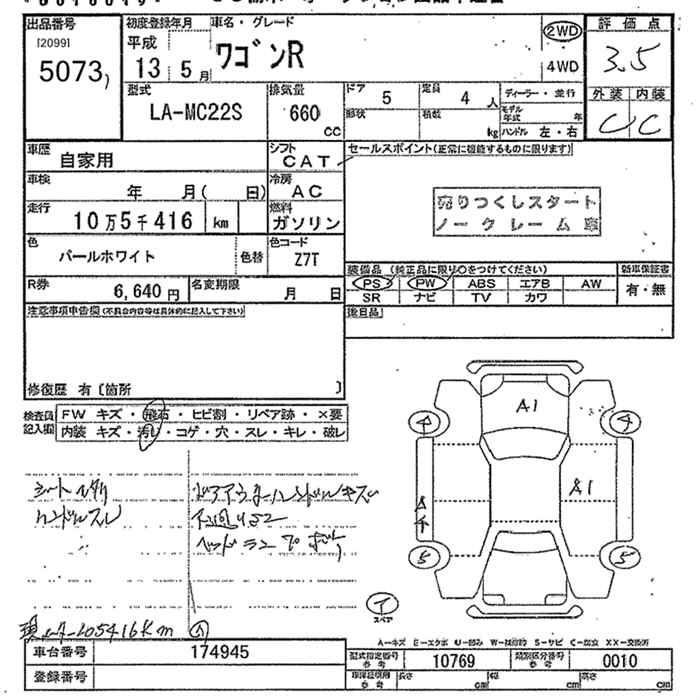 出品番号
[20991
5073
初度登録年月
平成
13 5月
車名・グレード
ワゴンR
2WD
4WD
評価点
3.5
外装 内装
C C
型式
LA-MC22S
排気量
660
CC
ドア
5
定員
4 人
形状
積載
kg
ディーラー・並行
モデル年式 年
ハンドル 左・右
車歴
自家用
シフト
CAT
セールスポイント(正常に機能するものに限ります)
車検
年 月( 日)
冷房
AC
走行
10万5千416 km
燃料
ガソリン
売りつくしスタート
ノークレーム車
色
パールホワイト
色替
色コード
Z7T
装備品(純正品に限り○をつけてください)
新車保証書
PS PW ABS エアB AW
SR ナビ TV カワ
有・無
R券
6,640円
名変期限
月 日
後日品
注意事項申告欄(不具合内容等は具体的に記入して下さい)
修復歴 有〔箇所 〕
検査員記入欄
FW キズ・飛石・ヒビ割・リペア跡・×要
内装 キズ・汚レ・コゲ・穴・スレ・キレ・破レ
A1
4 4
A1
5 5
シートヘタリ
ハンドルスレ
ドアアウターハンドルキズ
現メーター105416Km
イ
スペア
A-キズ E-エクボ U-凹み W-補修跡 S-サビ C-腐食 XX-交換済
車台番号
174945
登録番号
型式指定番号 参考
10769
類別区分番号 参考
0010
長さ cm
幅 cm
高さ cm